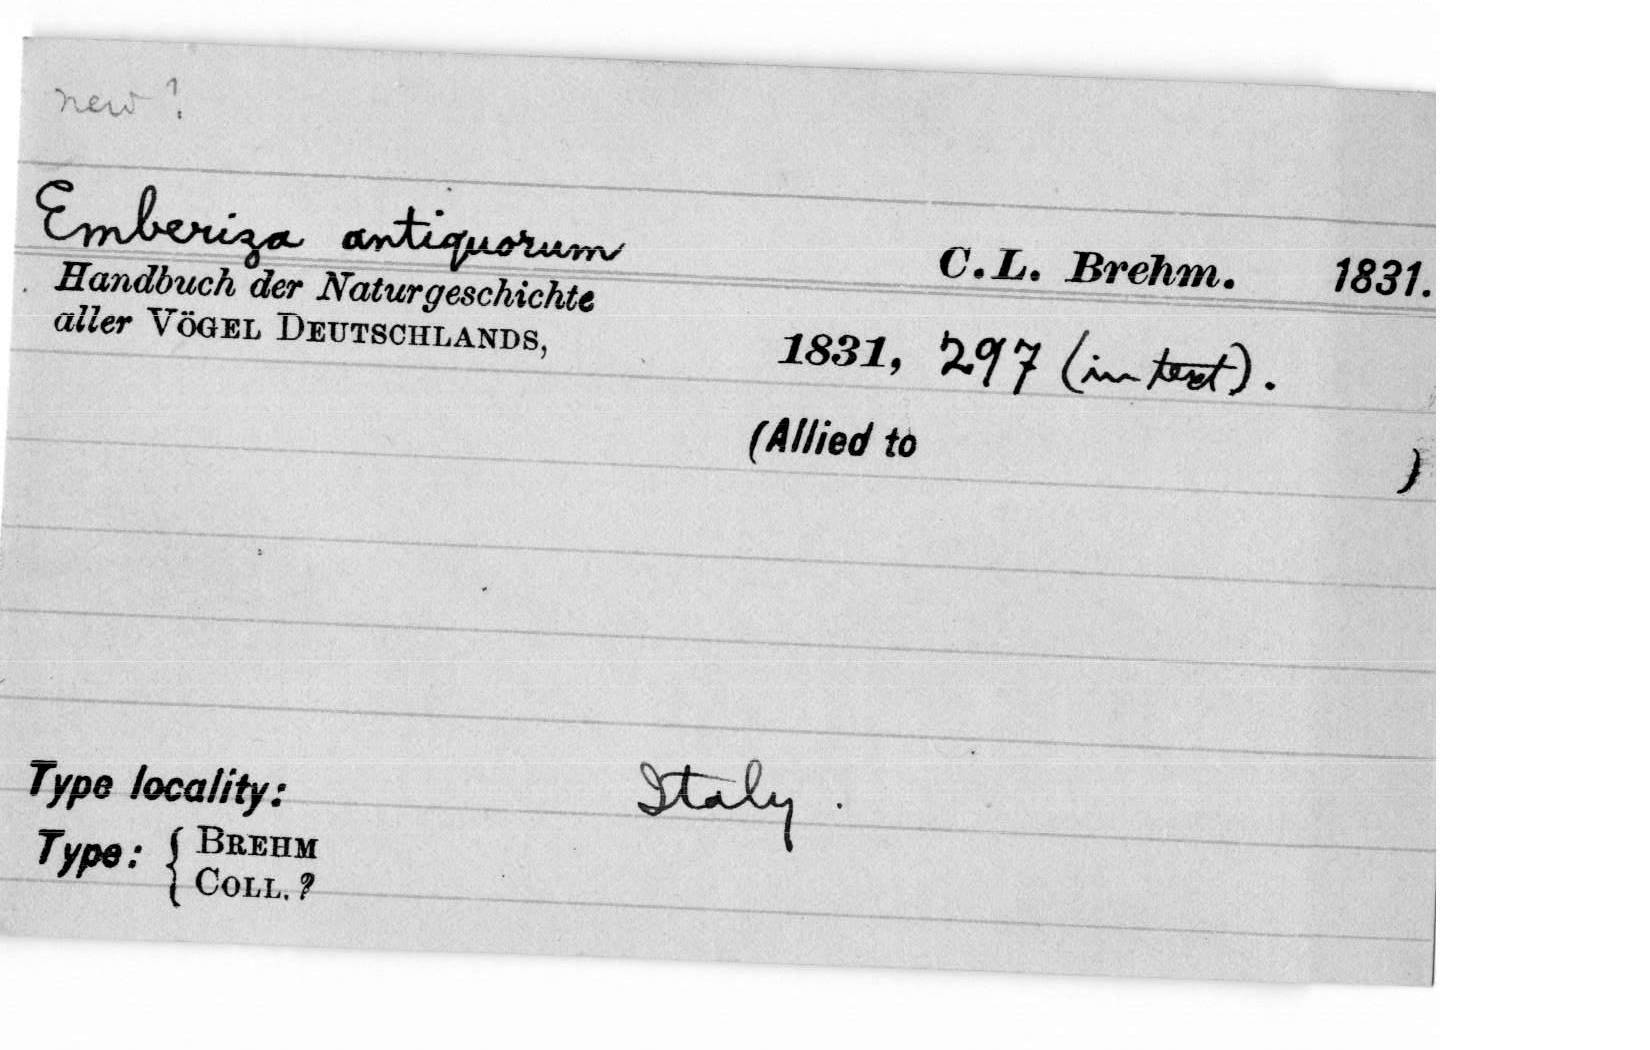 new?
Emberiza antiquorum C.L. Brehm. 1831.
Handbuch der Naturgeschichte
aller VÖGEL DEUTSCHLANDS,
1831, 297 (in text).
(Allied to )
Type locality: Italy.
Type: { BREHM
COLL. ?